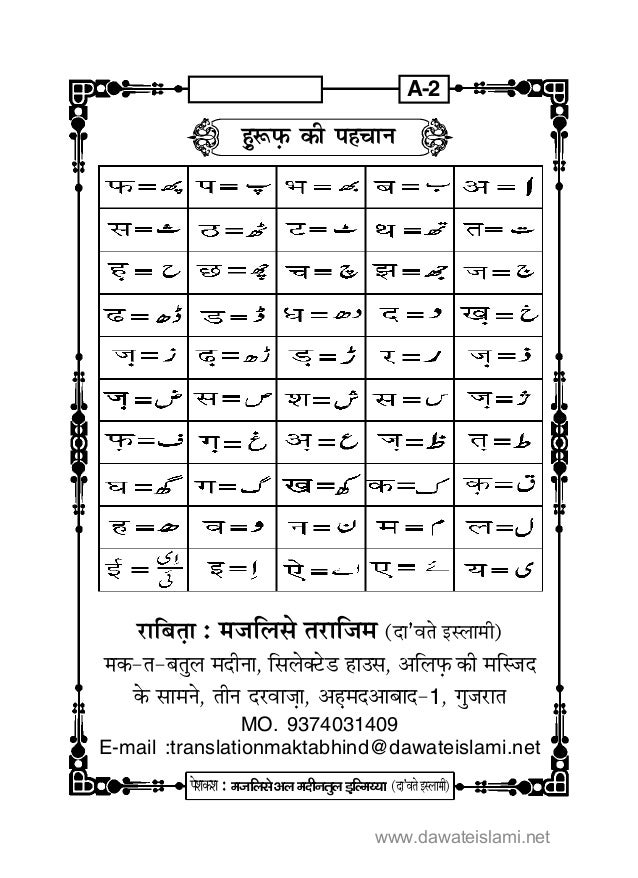 A-2
हुरूफ़ की पहचान
फ = پھ प = پ भ = بھ ब = ب अ = ا
स = ث ठ = ٹھ ट = ٹ थ = تھ त = ت
ह़ = ح छ = چھ च = چ झ = جھ ज = ج
ढ = ڈھ ड = ڈ ध = دھ द = د ख़ = خ
ज़ = ز ढ़ = ڑھ ड़ = ڑ र = ر ज़ = ذ
ज़ = ض स = ص श = ش स = س ज़ = ژ
फ़ = ف ग़ = غ अ़ = ع ज़ = ظ त़ = ط
घ = گھ ग = گ ख = کھ क = ک क़ = ق
ह = ھ व = و न = ن म = م ल = ل
ई = ای / ئی इ = اِ ऐ = اے ए = ے य = ی
राबित़ा : मजलिसे तराजिम (दा'वते इस्लामी)
मक-त-बतुल मदीना, सिलेक्टेड हाउस, अलिफ़ की मस्जिद
के सामने, तीन दरवाज़ा, अह़मदआबाद-1, गुजरात
MO. 9374031409
E-mail :translationmaktabhind@dawateislami.net
पेशकश : मजलिसे अल मदीनतुल इल्मिय्या (दा'वते इस्लामी)
www.dawateislami.net